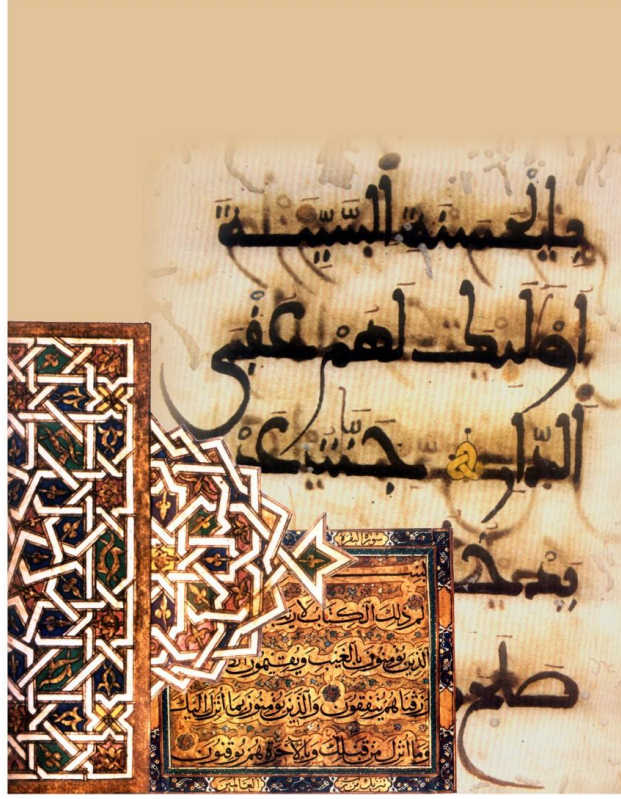 بِالْحَسَنَةِ السَّيِّئَةَ
اولئك لَهُمْ عُقْبَى
الدَّارِ جَنَّتُ عَد
يدخ
صلح
لم ذلك الكتاب لا
الذين يؤمنون بالغيب ويقيمون
رزقناهم ينفقون والذين يؤمنون بما أنزل إليك
وما أنزل من قبلك وبالآخرة هم يوقنون
تنزيل من رب العالمين